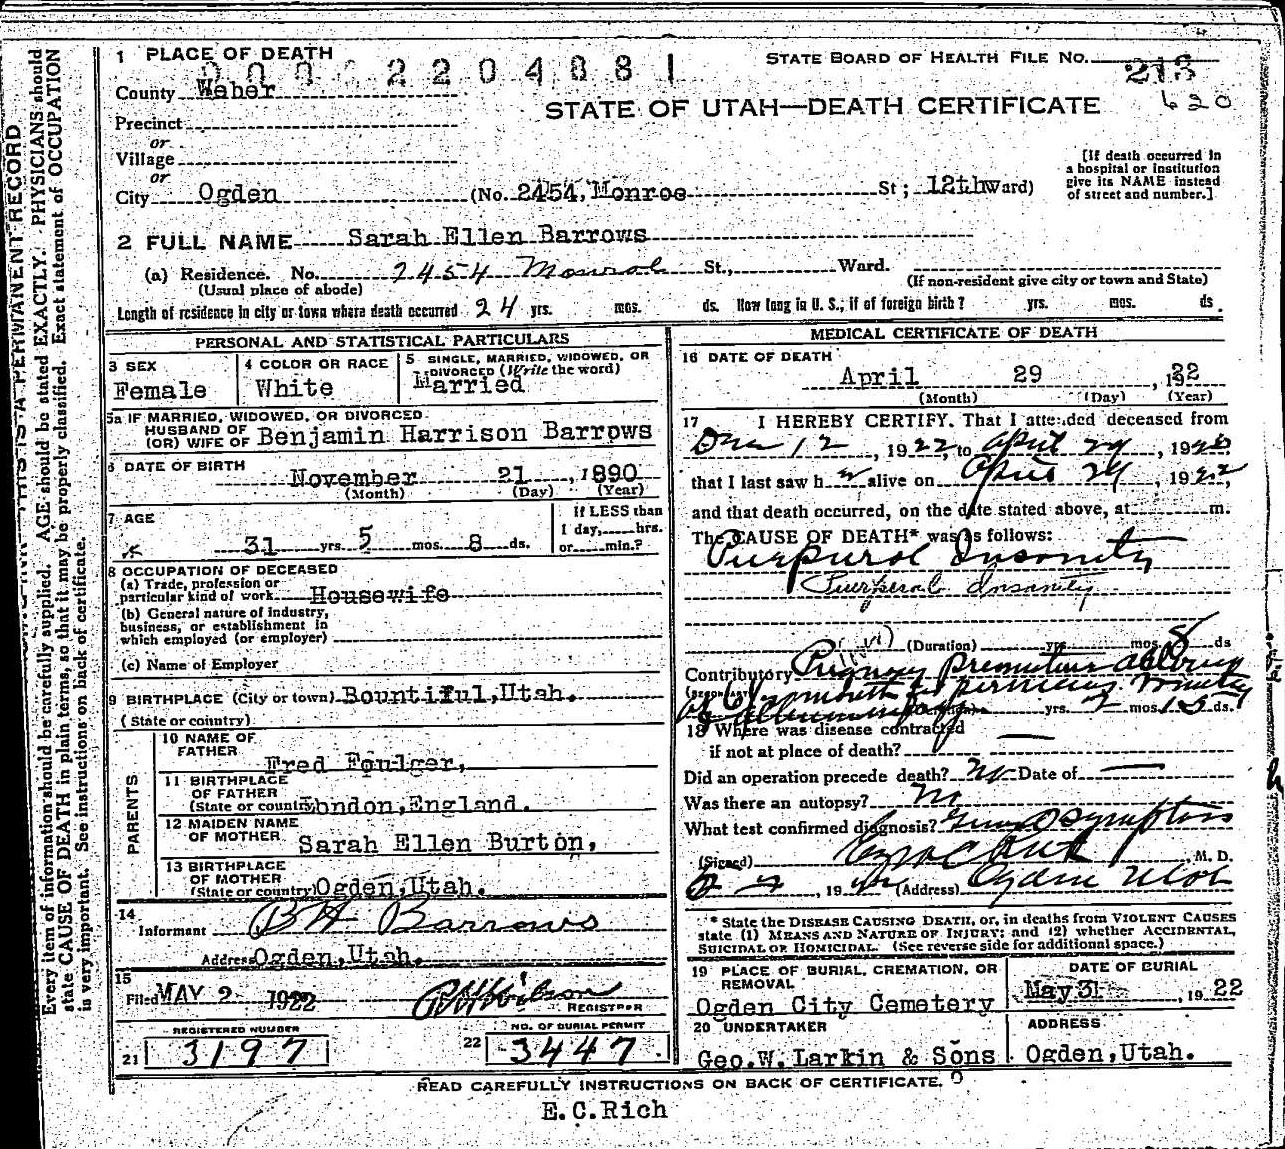 1 PLACE OF DEATH
0002204881
STATE BOARD OF HEALTH FILE No. 213
620
County Weber
STATE OF UTAH—DEATH CERTIFICATE
Precinct
or
Village
or
City Ogden (No. 2454, Monroe St; 12th Ward)
[If death occurred in a hospital or institution give its NAME instead of street and number.]
2 FULL NAME Sarah Ellen Barrows
(a) Residence. No. 2454 Monroe St., Ward.
(Usual place of abode) (If non-resident give city or town and State)
Length of residence in city or town where death occurred 24 yrs. mos. ds. How long in U. S., if of foreign birth? yrs. mos. ds.
PERSONAL AND STATISTICAL PARTICULARS
3 SEX
Female
4 COLOR OR RACE
White
5 SINGLE, MARRIED, WIDOWED, OR DIVORCED (Write the word)
Married
5a IF MARRIED, WIDOWED, OR DIVORCED
HUSBAND OF
(OR) WIFE OF Benjamin Harrison Barrows
6 DATE OF BIRTH
November 21, 1890
(Month) (Day) (Year)
7 AGE
31 yrs. 5 mos. 8 ds.
if LESS than
1 day, hrs.
or min.?
8 OCCUPATION OF DECEASED
(a) Trade, profession or
particular kind of work Housewife
(b) General nature of industry,
business, or establishment in
which employed (or employer)
(c) Name of Employer
9 BIRTHPLACE (City or town) Bountiful, Utah.
(State or country)
PARENTS
10 NAME OF
FATHER
Fred Foulger,
11 BIRTHPLACE
OF FATHER
(State or country) London, England.
12 MAIDEN NAME
OF MOTHER Sarah Ellen Burton,
13 BIRTHPLACE
OF MOTHER
(State or country) Ogden, Utah.
14
Informant B H Barrows
Address Ogden, Utah.
15
Filed MAY 2 1922
REGISTRAR
REGISTERED NUMBER
21 3197
NO. OF BURIAL PERMIT
22 3447
MEDICAL CERTIFICATE OF DEATH
16 DATE OF DEATH
April 29, 1922
(Month) (Day) (Year)
17 I HEREBY CERTIFY, That I attended deceased from
12, 1922, to April 29, 1922
that I last saw h alive on April 29, 1922,
and that death occurred, on the date stated above, at m.
The CAUSE OF DEATH* was as follows:
Purpural Insanity
Puerperal Insanity
(Duration) yrs. mos. 8 ds
Contributory
yrs. 2 mos. 15 ds.
18 Where was disease contracted
if not at place of death? —
Did an operation precede death? No Date of —
Was there an autopsy? No
What test confirmed diagnosis? Symptoms
(Signed) , M. D.
, 19 (Address) Ogden Utah
* State the DISEASE CAUSING DEATH, or, in deaths from VIOLENT CAUSES
state (1) MEANS AND NATURE OF INJURY; and (2) whether ACCIDENTAL,
SUICIDAL OR HOMICIDAL. (See reverse side for additional space.)
19 PLACE OF BURIAL, CREMATION, OR
REMOVAL
Ogden City Cemetery
DATE OF BURIAL
May 31, 1922
20 UNDERTAKER
Geo. W. Larkin & Sons
ADDRESS
Ogden, Utah.
READ CAREFULLY INSTRUCTIONS ON BACK OF CERTIFICATE.
E.C.Rich
THIS IS A PERMANENT RECORD
Every item of information should be carefully supplied. AGE should be stated EXACTLY. PHYSICIANS should
state CAUSE OF DEATH in plain terms, so that it may be properly classified. Exact statement of OCCUPATION
is very important. See instructions on back of certificate.